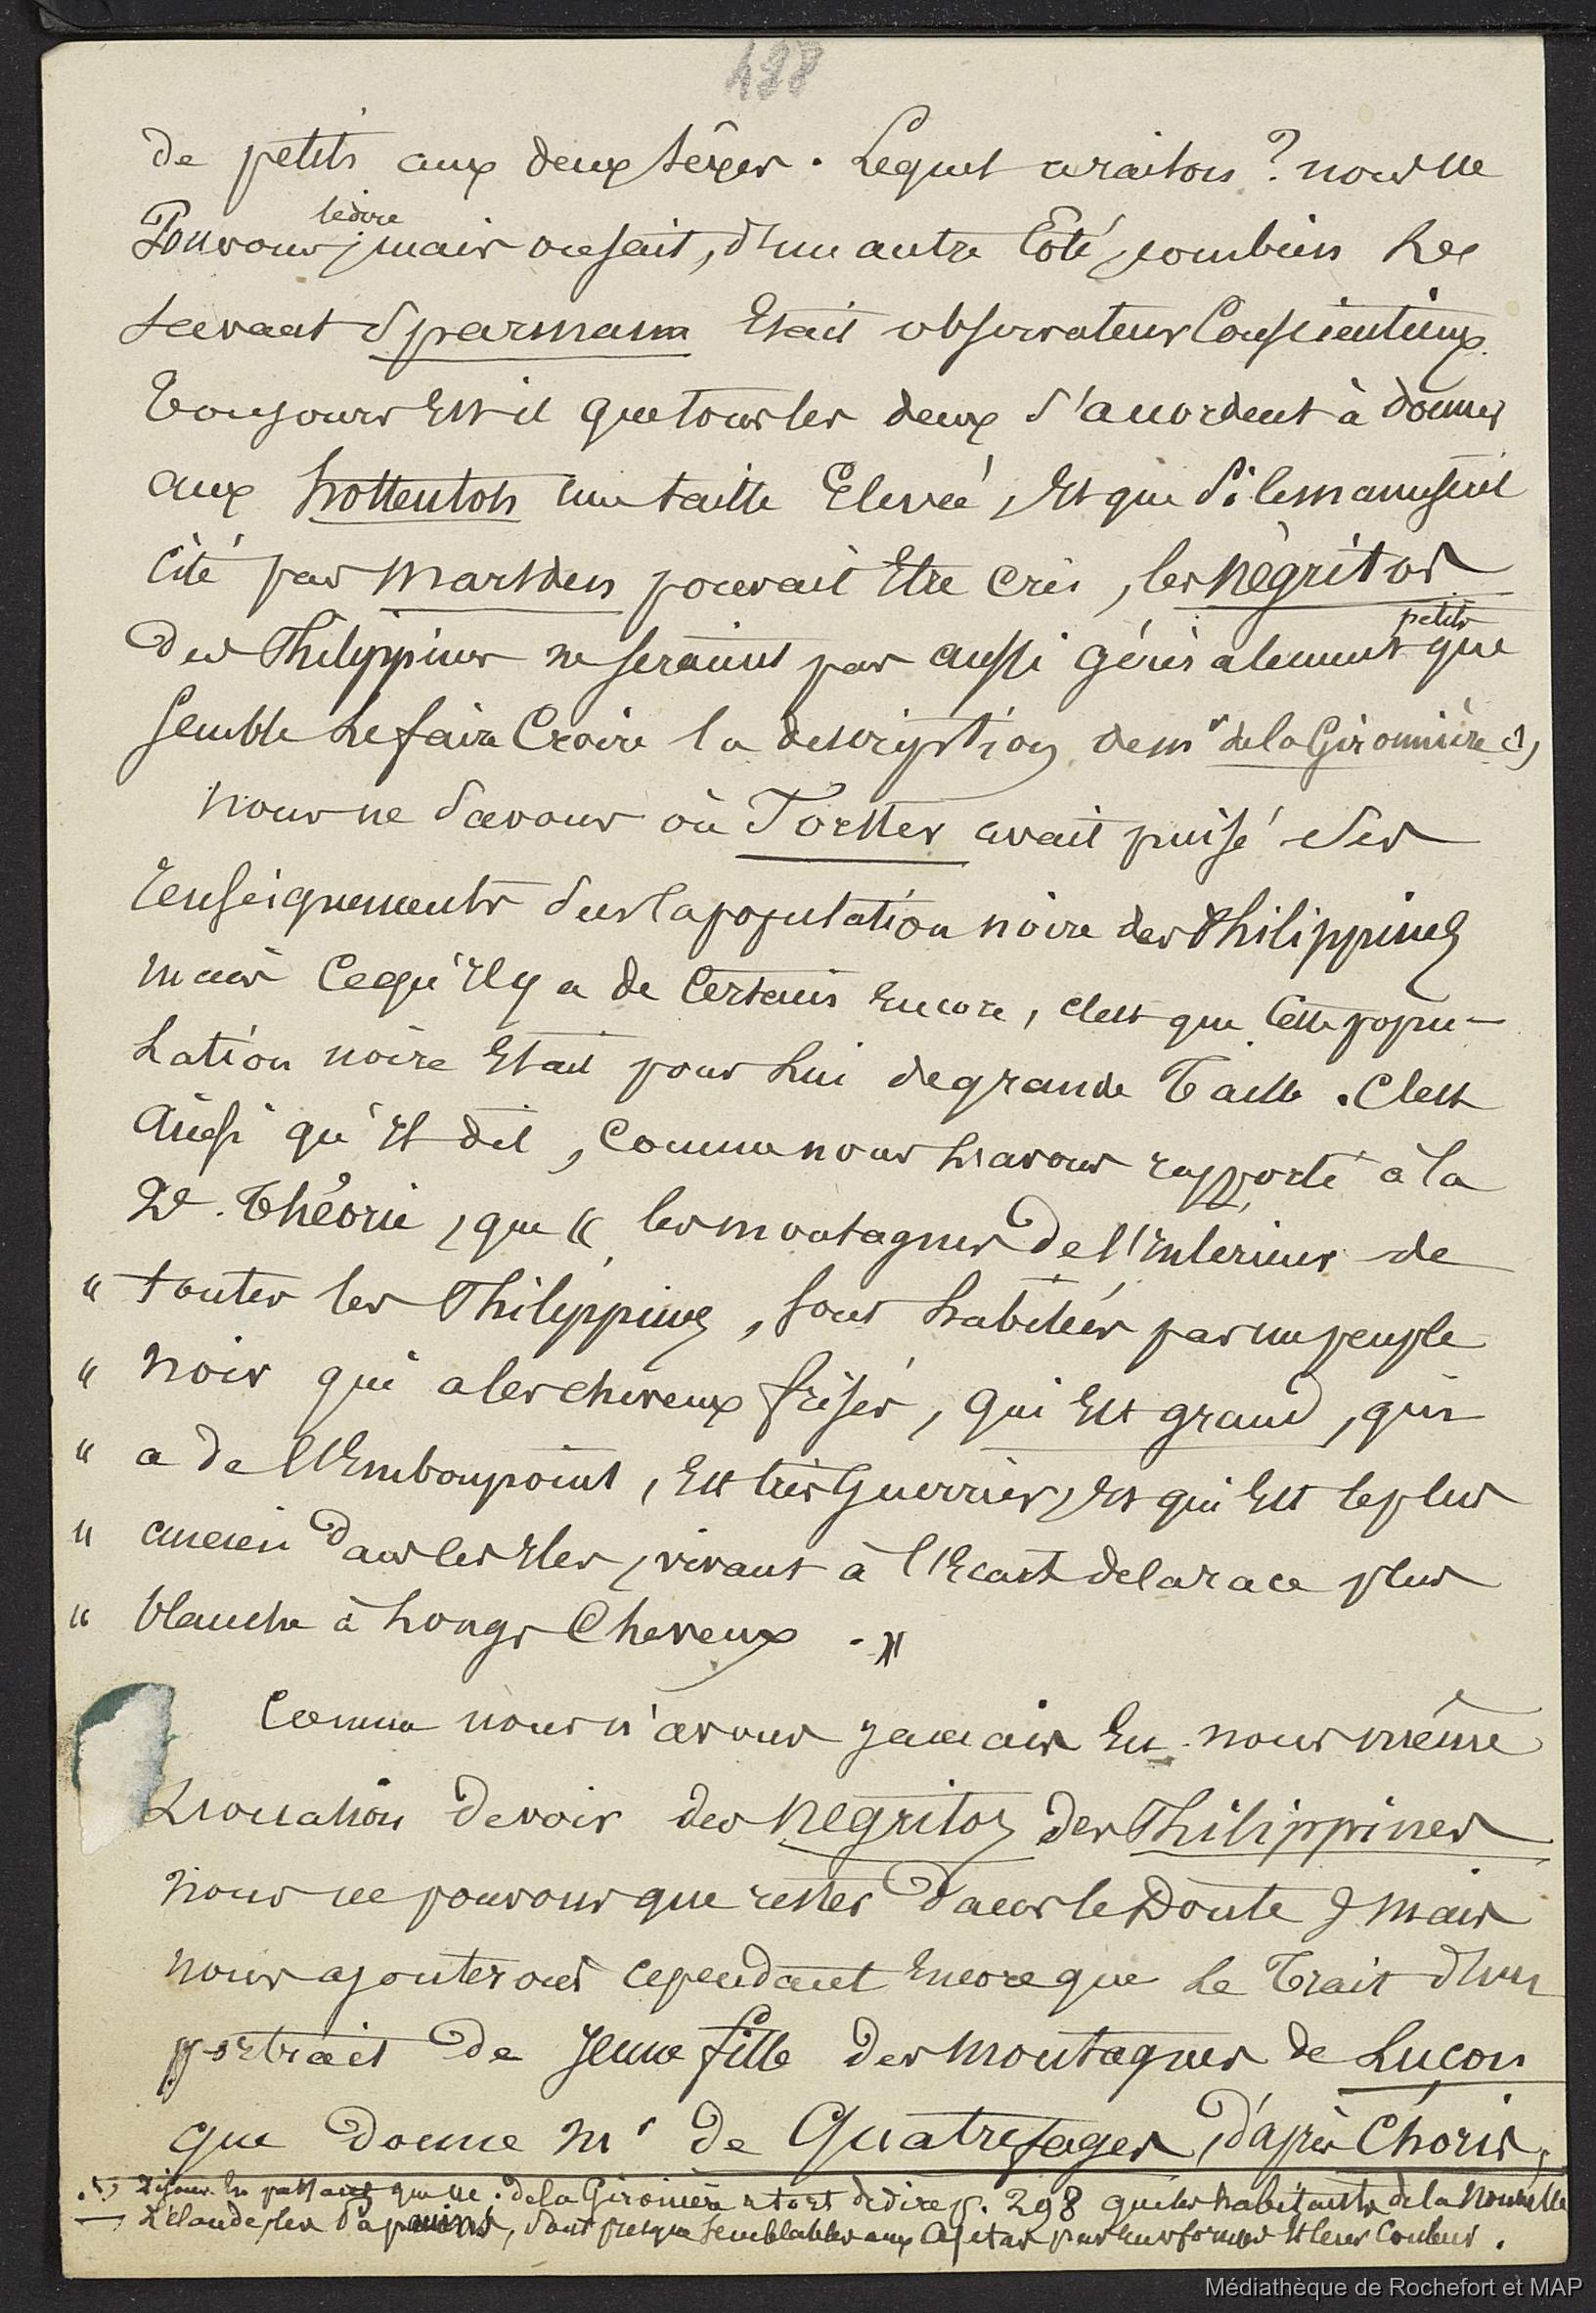 488
de petits aux deux sexes. Lequel a raison ? nous ne
le dire
Pouvons ; mais on sait, d'un autre Coté, combien Le
Savant Sparmann Etait observateur Consciencieux.
Toujours Est-il que tous les deux s'accordent à donner
aux hottentots une taille Elevée, Et que si le manuscrit
Cité par Marsden pouvait Etre Crû, les Négritos
petits
Des Philippines ne seraient pas aussi généralement que
Semble Le faire Croire la description de Mr de la Gironnière (1)
Nous ne Savons où Forster avait puisé Ses
renseignements Sur la population noire des Philippines
mais Ce qu'il y a de Certain Encore, c'est que Cette popu-
Lation noire Etait pour Lui de grande Taille. C'est
Ainsi qu'Il dit, Comme nous L'avons rapporté à la
2e. Théorie, que « les montagnes De l'Intérieur de
" toutes les Philippines, sont habitées par un peuple
" noir qui a les cheveux frisés, qui Est grand, qui
" a de l'Embonpoint, Est très Guerrier, Et qui Est le plus
" ancien Dans les Iles, vivant à l'Ecart de la race plus
" blanche à Longs Cheveux . »
Comme nous n'avons jamais Eu nous même
L'occasion de voir des Négritos des Philippines
nous ne pouvons que rester Dans le Doute ; Mais
nous ajouterons cependant Encore que Le Trait d'un
portrait De Jeune fille des montagnes de Luçon
que Donne Mr De Quatrefages, D'après Choris,
(1) Disons En passant que M. de la Gironière a tort de dire p. 298 que les habitants de la Nouvelle
— Zélande, les Papouins, sont presque Semblables aux Ajetas par leurs formes Et leur Couleur.
Médiathèque de Rochefort et MAP